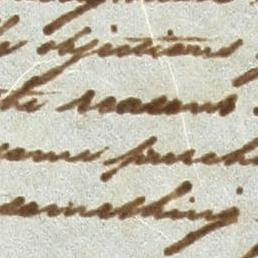 objections
the reasons
same purcha
something